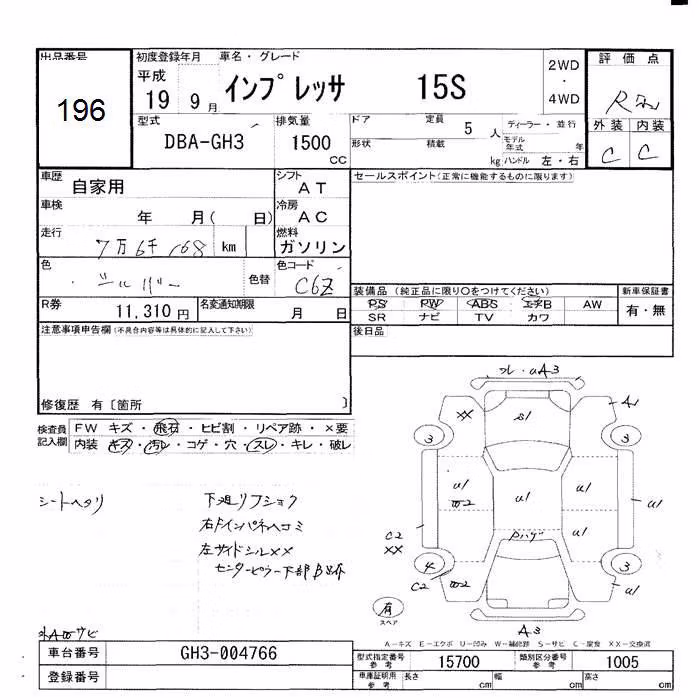 出品番号 196
初度登録年月 車名・グレード
平成 19 9 月 インプレッサ 15S
2WD
・
4WD
評価点
R
外装 内装
C C
型式 DBA-GH3
排気量 1500 CC
ドア 定員 5 人
形状 積載 kg
ディーラー・並行
モデル年式 年
ハンドル 左・右
車歴 自家用
シフト AT
セールスポイント(正常に機能するものに限ります)
車検 年 月( 日)
冷房 AC
走行 7万6千168 km
燃料 ガソリン
色 シルバー 色替
色コード C6Z
装備品 (純正品に限り○をつけてください)
新車保証書
PS PW ABS エアB AW
有・無
SR ナビ TV カワ
R券 11,310 円
名変通知期限 月 日
後日品
注意事項申告欄(不具合内容等は具体的に記入して下さい)
修復歴 有〔箇所 〕
検査員記入欄
FW キズ・飛石・ヒビ割・リペア跡・×要
内装 キズ・汚レ・コゲ・穴・スレ・キレ・破レ
シートヘタリ
下廻リフショク
右ドインパネヘコミ
左サイドシルXX
センターピラー下部
フレ・UA3
XX
A1
S1
3
3
U1
W2
U1
U1
U1
U1
C2
XX
Pハゲ
4
3
C2
W2
U1
有
スペア
A3
外AWサビ
A-キズ E-エクボ U-凹み W-補修跡 S-サビ C-腐食 XX-交換済
車台番号 GH3-004766
登録番号
型式指定番号 参考 15700
類別区分番号 参考 1005
車庫証明用 参考 長さ cm 幅 cm 高さ cm